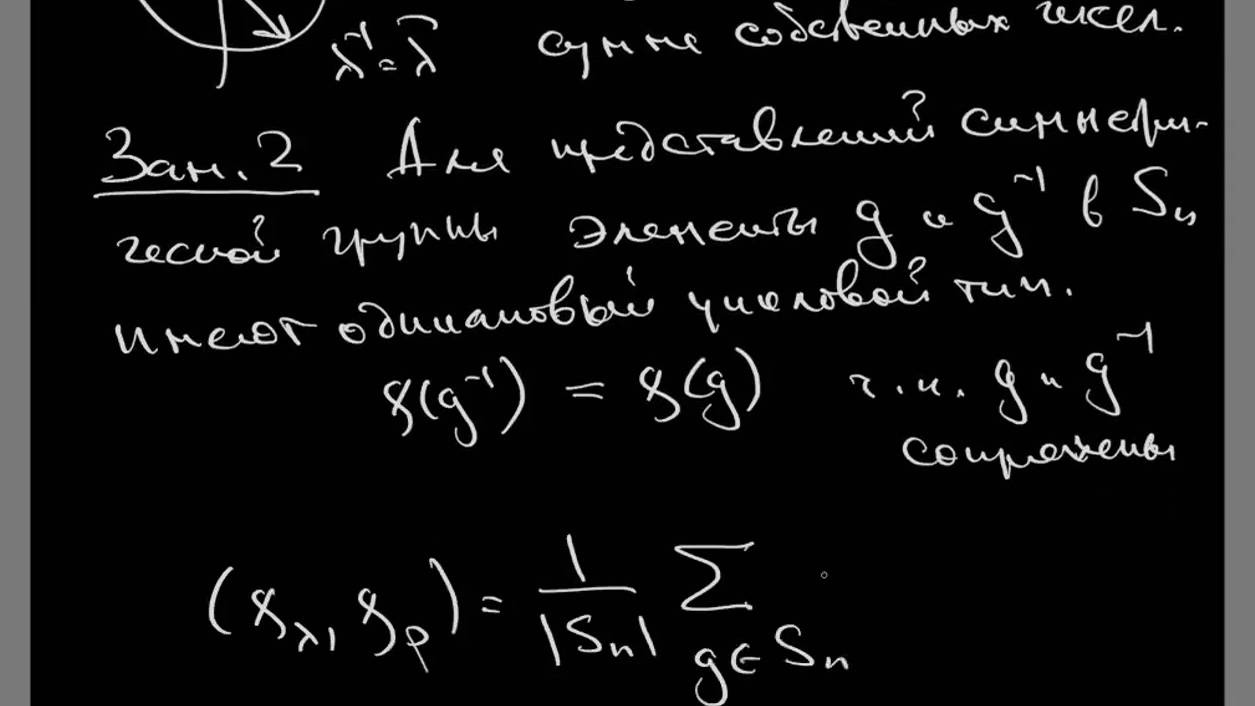 λ⁻¹ = λ̄ сумме собственных чисел.
Зам. 2 Для представлений симметри-
ческой группы элементы g и g⁻¹ в Sₙ
имеют одинаковый цикловой тип.
χ(g⁻¹) = χ(g) т.к. g и g⁻¹
сопряжены
(χ_λ, χ_ρ) = 1/|Sₙ| Σ_{g∈Sₙ}